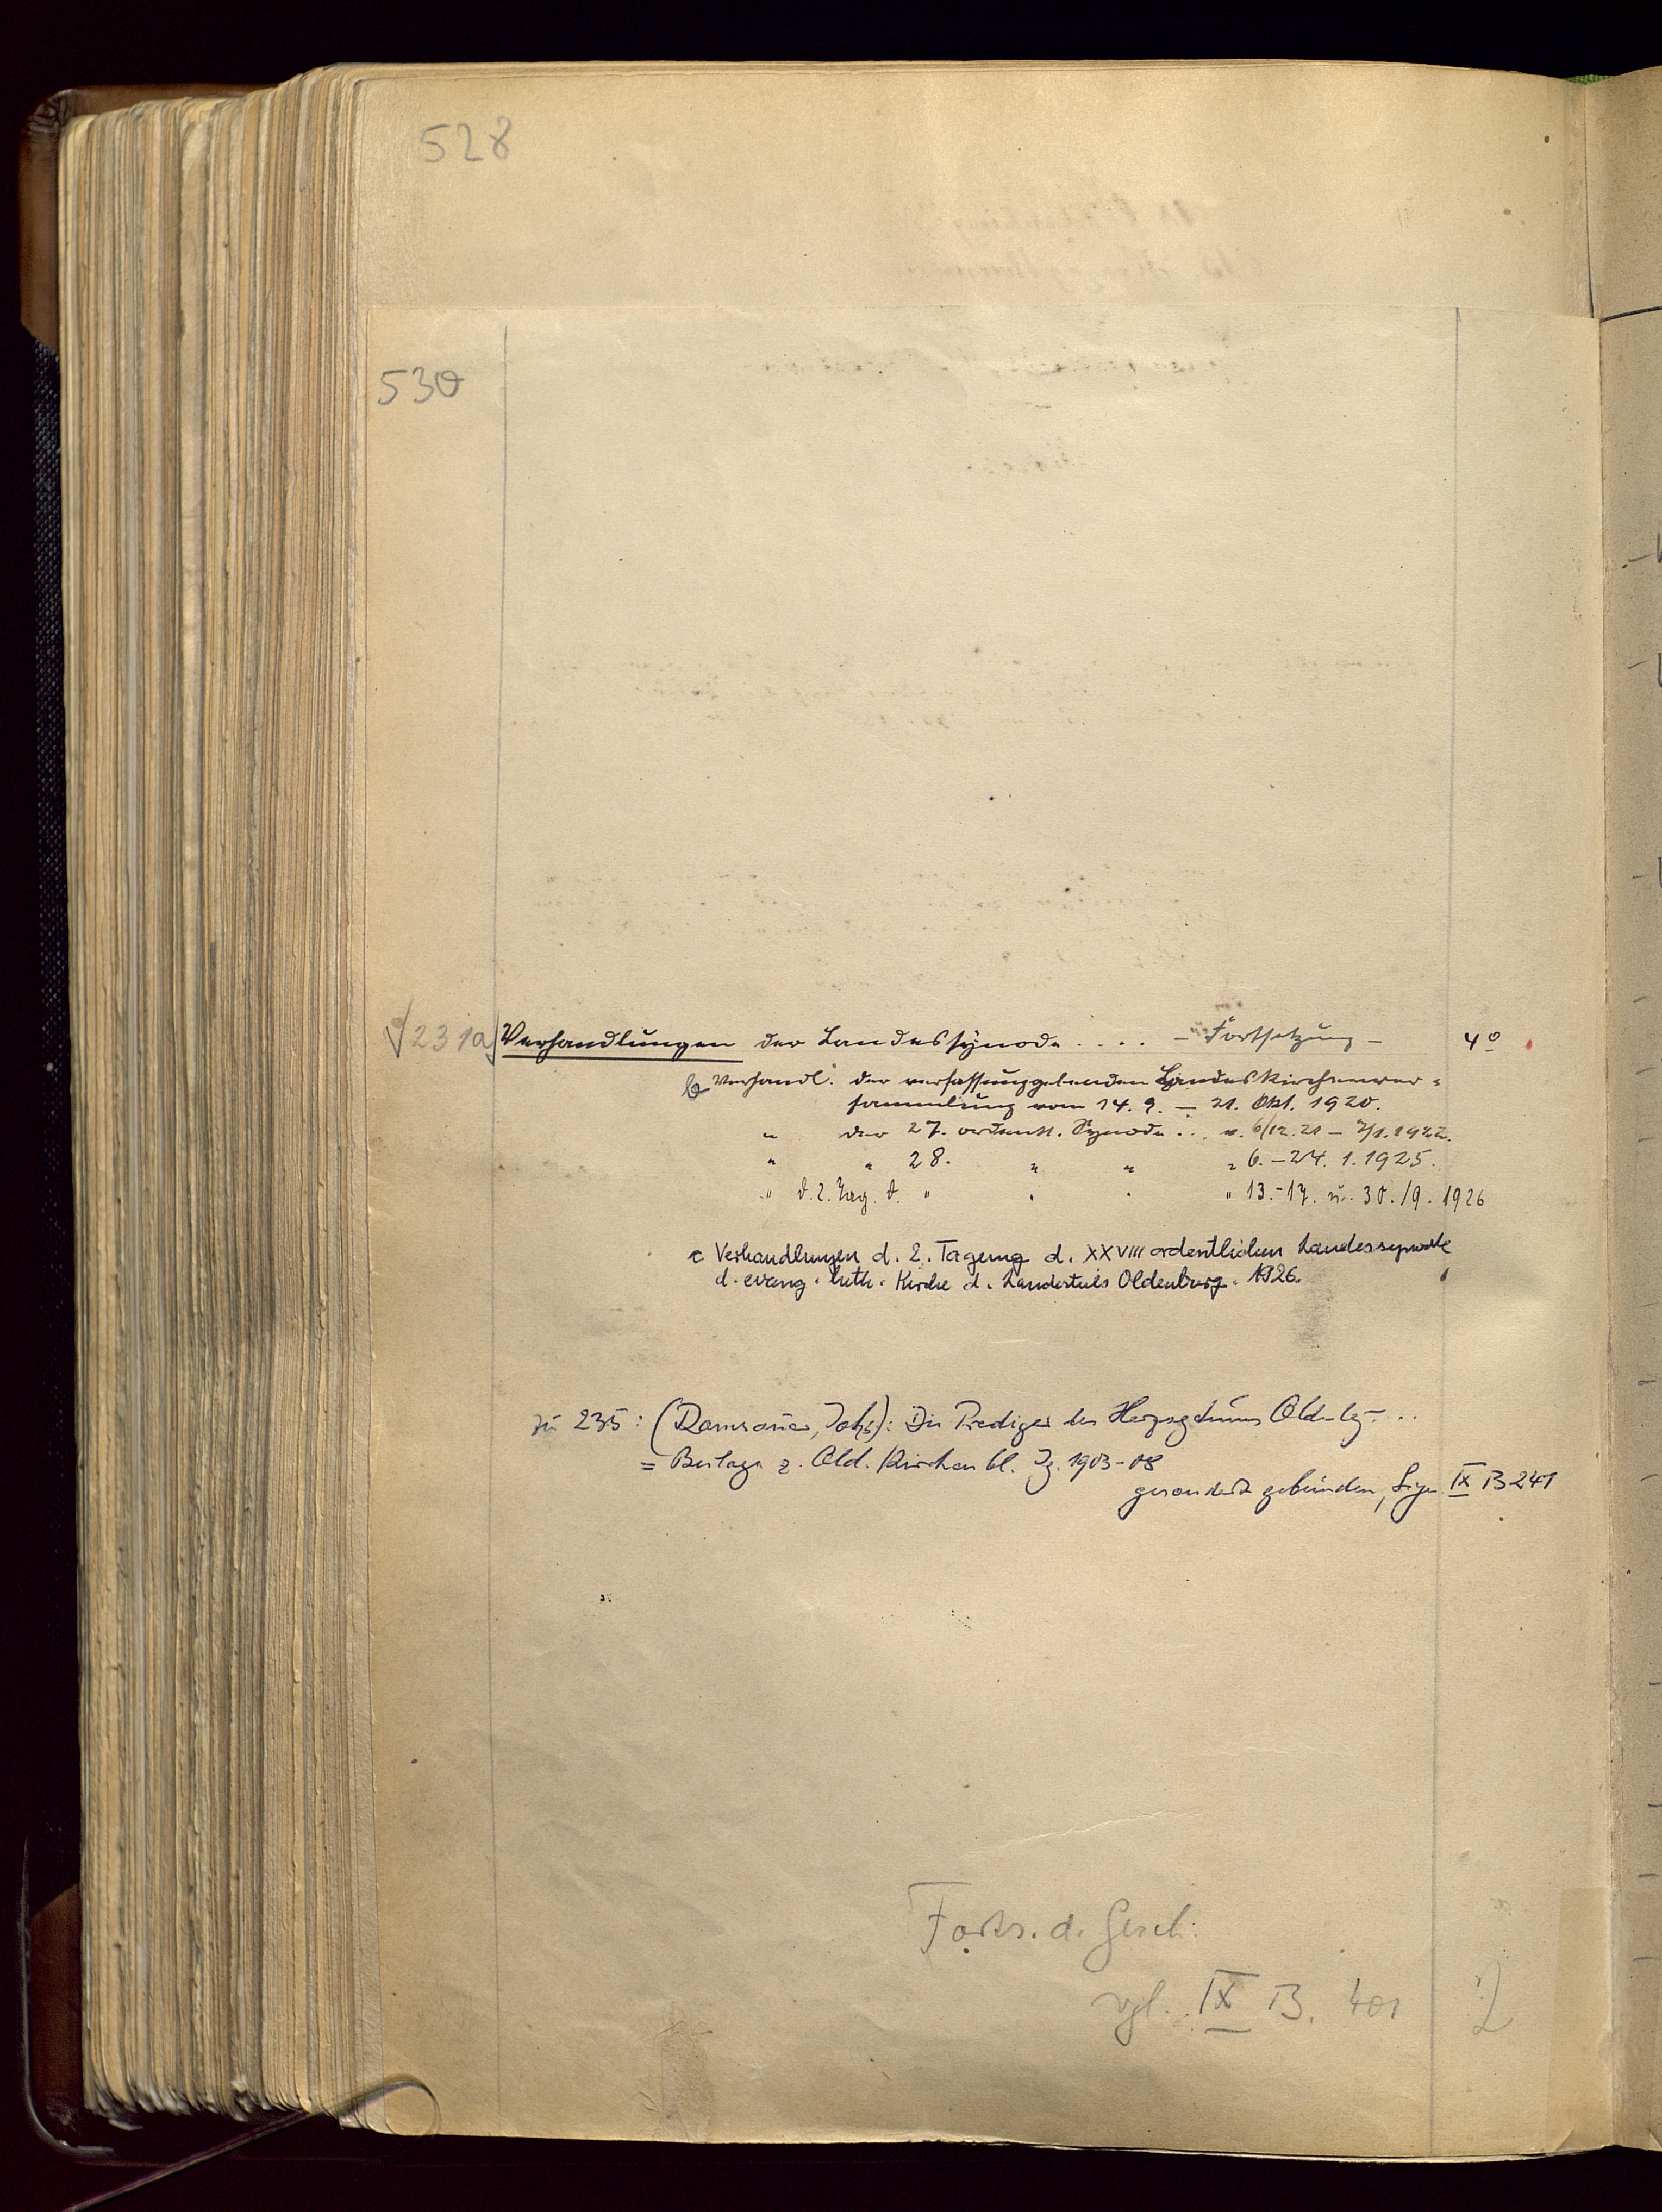 528
530
231a Verhandlungen der Landessynode .... – Fortsetzung – 4°
b Verhandl. der verfassunggebenden Landeskirchenver=
sammlung vom 14. 9. – 21. Okt. 1920.
" der 27. ordentl. Synode ... v. 6/12.21 – 7/1.1922.
" " 28. " " " 6. – 24. 1. 1925.
" d. 2. Tag. d. " " " " 13.–17. u. 30./9. 1926
c Verhandlungen d. 2. Tagung d. XXVIII ordentlichen Landessynode
d. evang. luth. Kirche d. Landesteils Oldenburg. 1926.
zu 235: (Ramsauer, Johs): Die Prediger des Herzogtums Oldenbg. ...
= Beilage z. Old. Kirchenbl. Jg. 1903-08
gesondert gebunden, Sign. IX B 241
Forts. d. Gesch.
vgl. IX B. 401